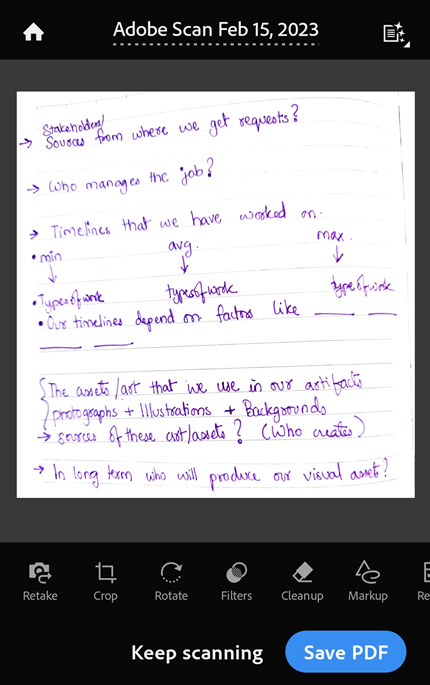 Adobe Scan Feb 15, 2023
Stakeholders/
→ Sources from where we get requests?
→ Who manages the job?
→ Timelines that we have worked on.
• min avg. max.
↓ ↓ ↓
• Types of work types of work type of work
• Our timelines depend on factors like ____ ____
____ ____
{ The assets/art that we use in our artifacts
photographs + Illustrations + Backgrounds
→ sources of these art/assets? (Who creates)
→ In long term who will produce our visual asset?
Retake Crop Rotate Filters Cleanup Markup Re
Keep scanning Save PDF